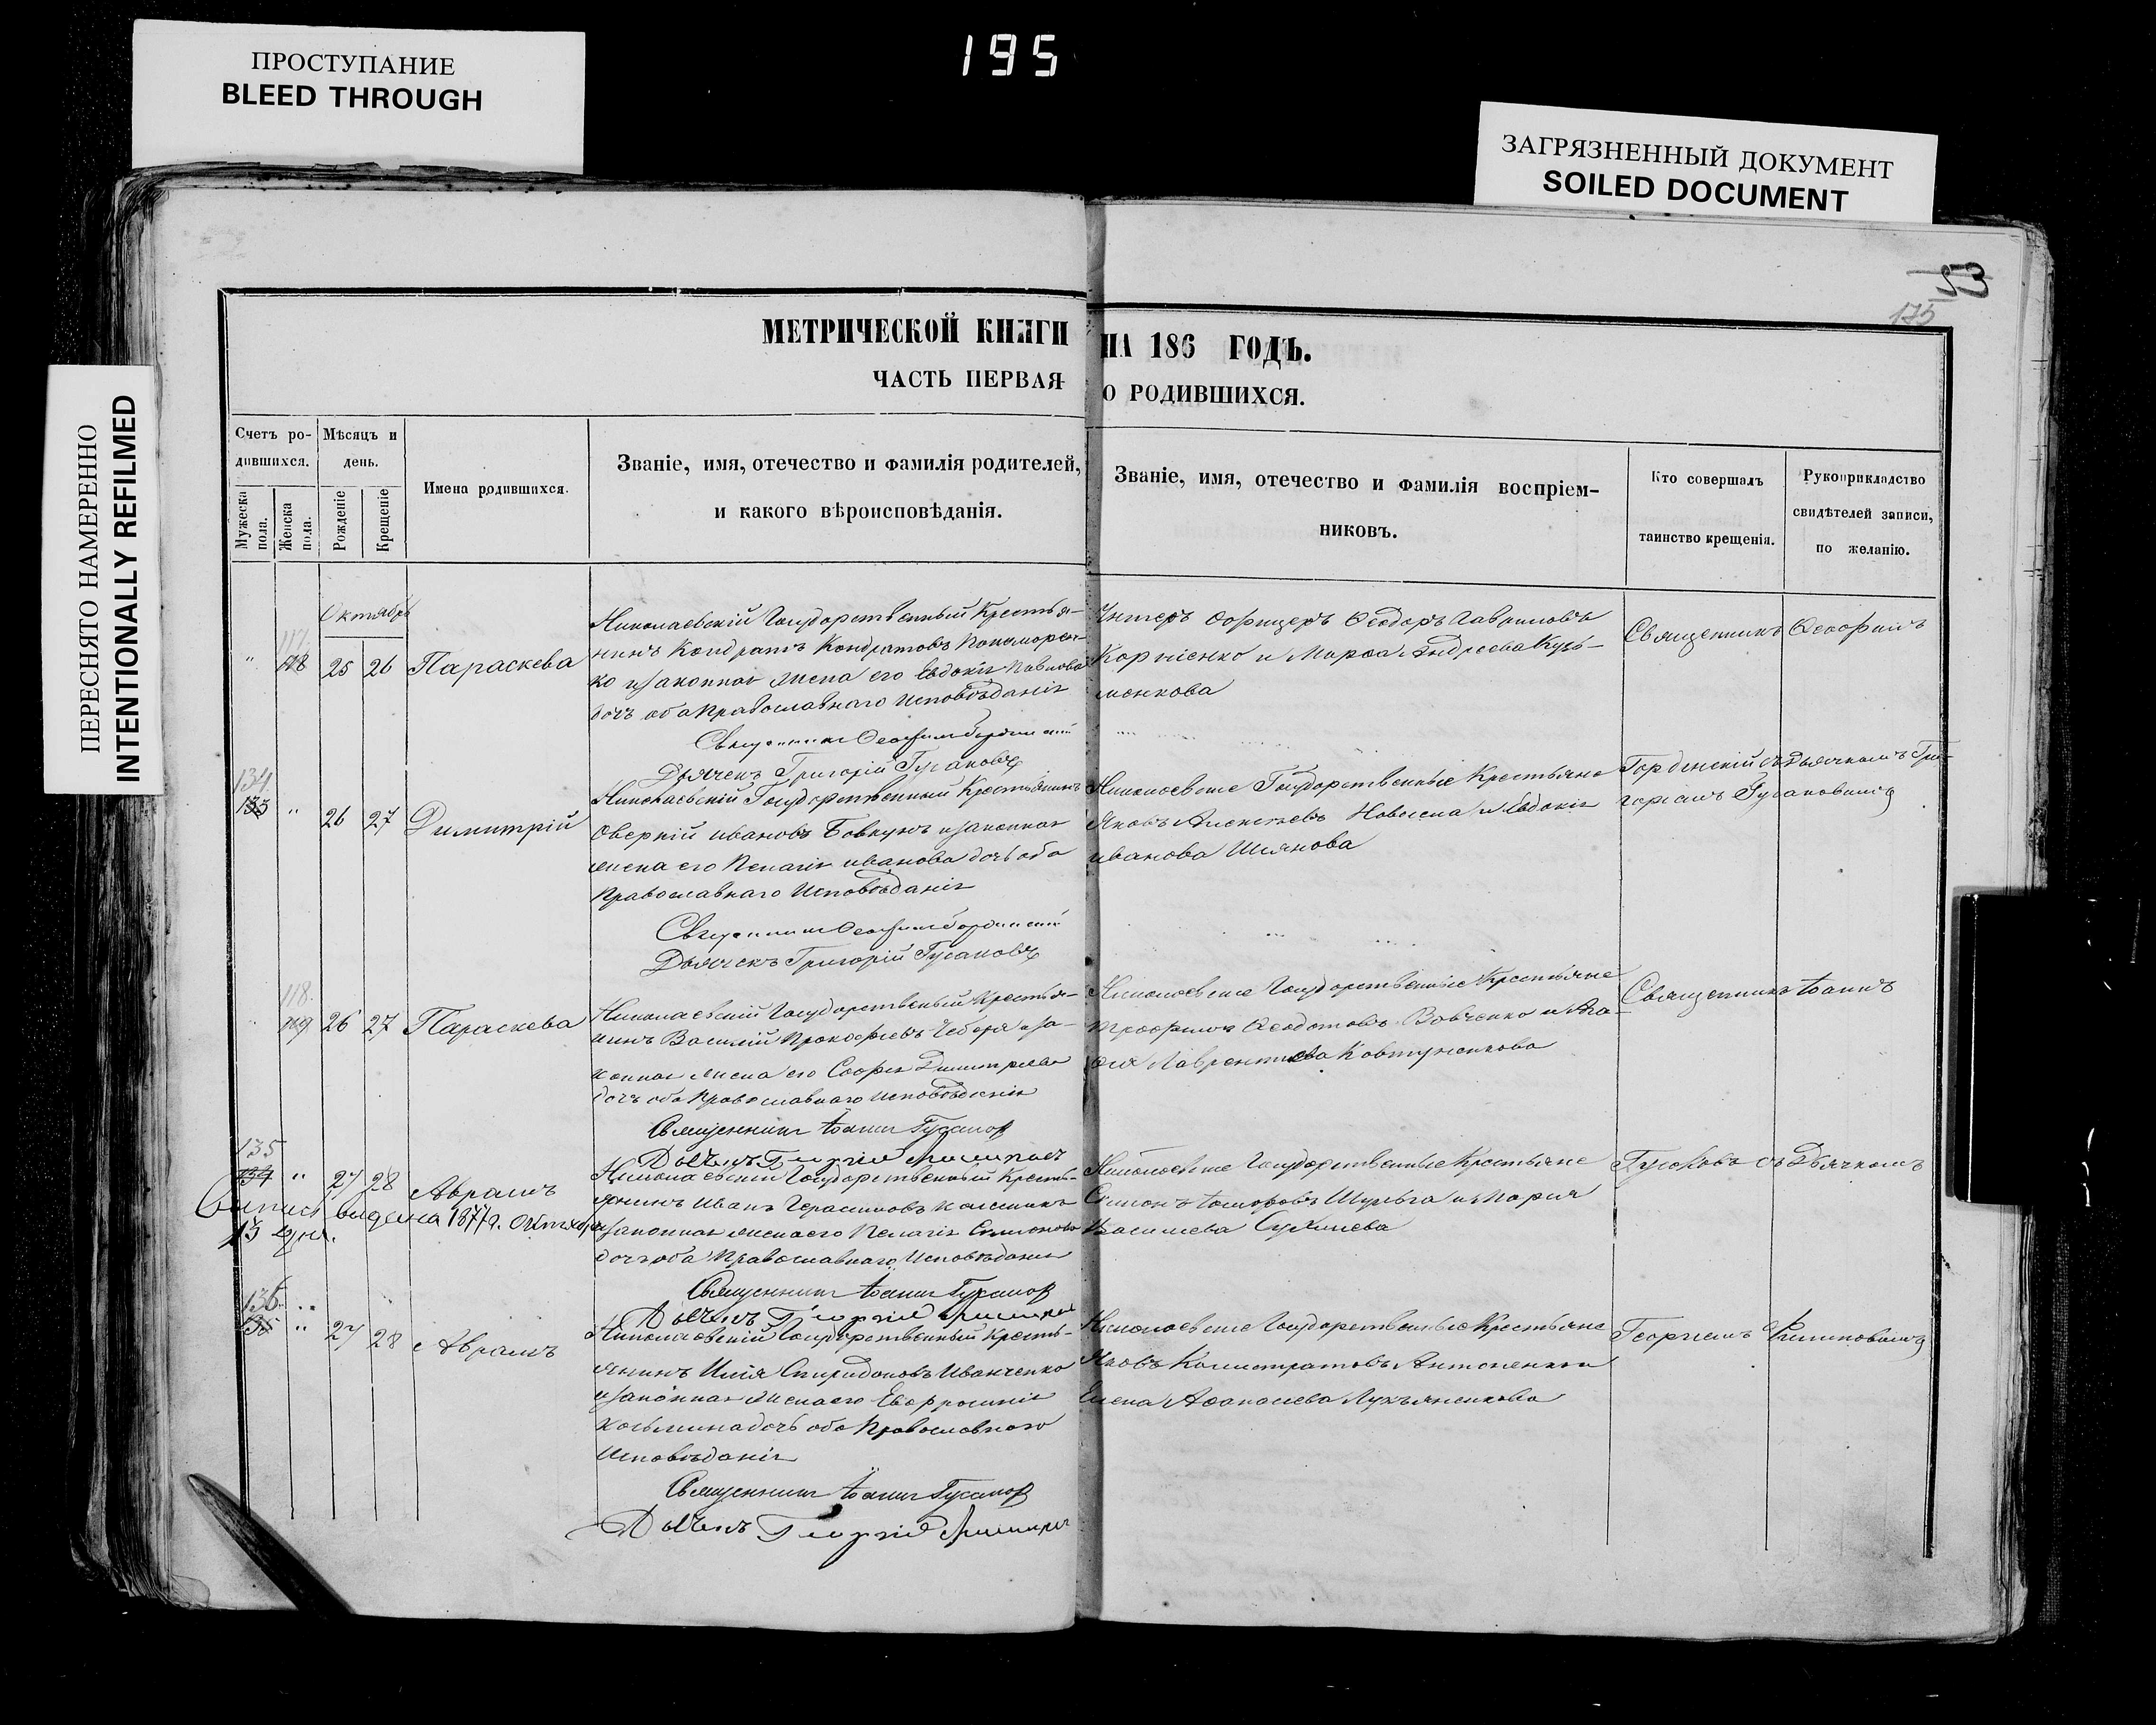 195
ПРОСТУПАНИЕ
BLEED THROUGH
ЗАГРЯЗНЕННЫЙ ДОКУМЕНТ
SOILED DOCUMENT
ПЕРЕСНЯТО НАМЕРЕННО
INTENTIONALLY REFILMED
53
175
МЕТРИЧЕСКОЙ КНИГИ НА 186 ГОДЪ.
ЧАСТЬ ПЕРВАЯ О РОДИВШИХСЯ.
Счетъ родившихся.
Мужеска пола.
Женска пола.
Мѣсяцъ и день.
Рожденіе
Крещеніе
Имена родившихся.
Званіе, имя, отечество и фамилія родителей,
и какого вѣроисповѣданія.
Званіе, имя, отечество и фамилія воспріем-
никовъ.
Кто совершалъ
таинство крещенія.
Рукоприкладство
свидѣтелей записи,
по желанію.
Октябрь
117
118 25 26 Параскева
Николаевскій Государственный Крестья-
нинъ Кондратъ Кондратовъ Пономарен-
ко и законная жена его Евдокія Павлова
дочь оба Православнаго Исповѣданія
Унтеръ Офицеръ Ѳеодоръ Гавриловъ
Корніенко и Марѳа Андреева Кузь-
менкова
Священникъ Ѳеофилъ
Дьячекъ Григорій Гусаковъ
134
133 " 26 27 Димитрій
Николаевскій Государственный Крестьянинъ
Оверкій Ивановъ Бовкунъ и законная
жена его Пелагія Иванова дочь оба
Православнаго Исповѣданія
Николаевскіе Государственные Крестьяне
Яковъ Алексѣевъ и Евдокія
Иванова
съ Дьячкомъ Гри-
горіемъ Гусаковымъ
Дьячекъ Григорій Гусаковъ
118
119 26 27 Параскева
Николаевскій Государственный Крестья-
нинъ Василій Прокофьевъ и за-
конная жена его Софья Димитріева
дочь оба Православнаго Исповѣданія
Николаевскіе Государственные Крестьяне
Трофимъ Ѳеодотовъ Вовченко и
Лаврентіева Ковтуненкова
Священникъ Іоаннъ
Священникъ Іоаннъ Гусаковъ
135
134 " 27 28 Аврамъ
выдана 1877 г. Октября
13 дня.
Николаевскій Государственный Кресть-
янинъ Иванъ Герасимовъ
законная жена его Пелагія Симонова
дочь оба Православнаго Исповѣданія
Николаевскіе Государственные Крестьяне
Симонъ Шульга и Марія
Васильева
Гусаковъ съ Дьячкомъ
Священникъ Іоаннъ Гусаковъ
136
135 " 27 28 Аврамъ
Николаевскій Государственный Кресть-
янинъ Илія Спиридоновъ Иванченко
и законная жена его Евфросинія
Косьмина дочь оба Православнаго
Исповѣданія
Николаевскіе Государственные Крестьяне
Яковъ Калистратовъ Антоненко и
Елена Аѳанасіева Лукьяненкова
Георгіемъ Филиповымъ
Священникъ Іоаннъ Гусаковъ